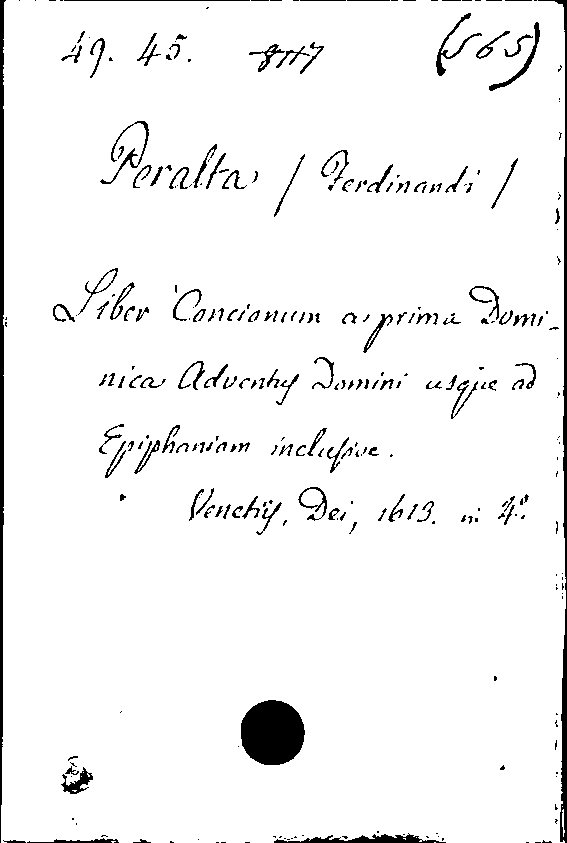 49. 45. 8117 (565)
Peralta / Ferdinandi /
Liber Concionum a prima Domi-
nica Adventus Domini usque ad
Epiphaniam inclusive.
Venetiis, Dei, 1613. in 4º.